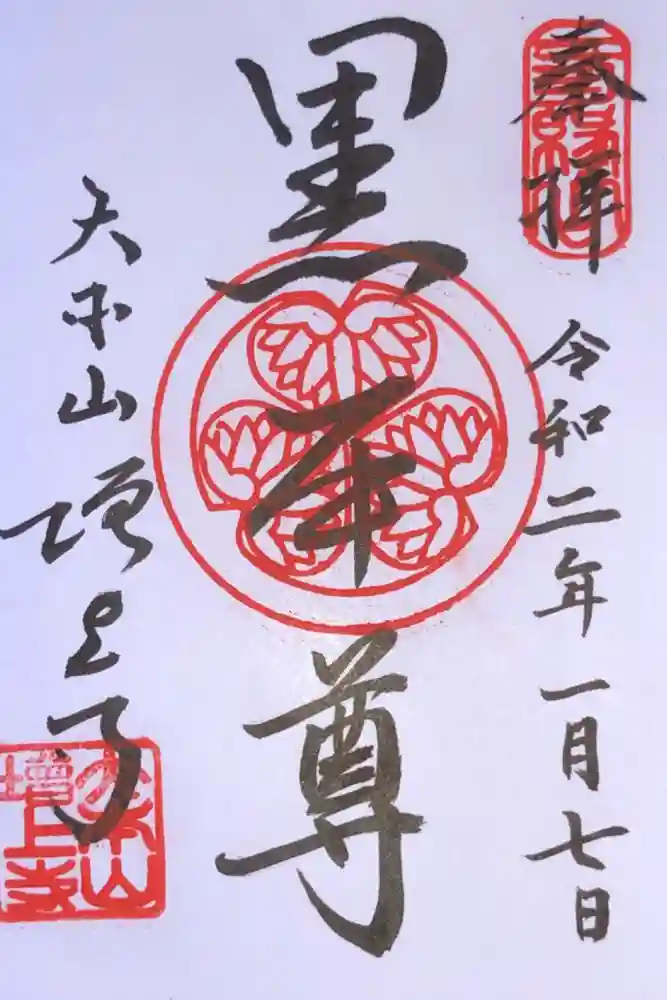 奉拝
令和二年一月七日
黒本尊
大本山
増上寺
大本山
増上寺